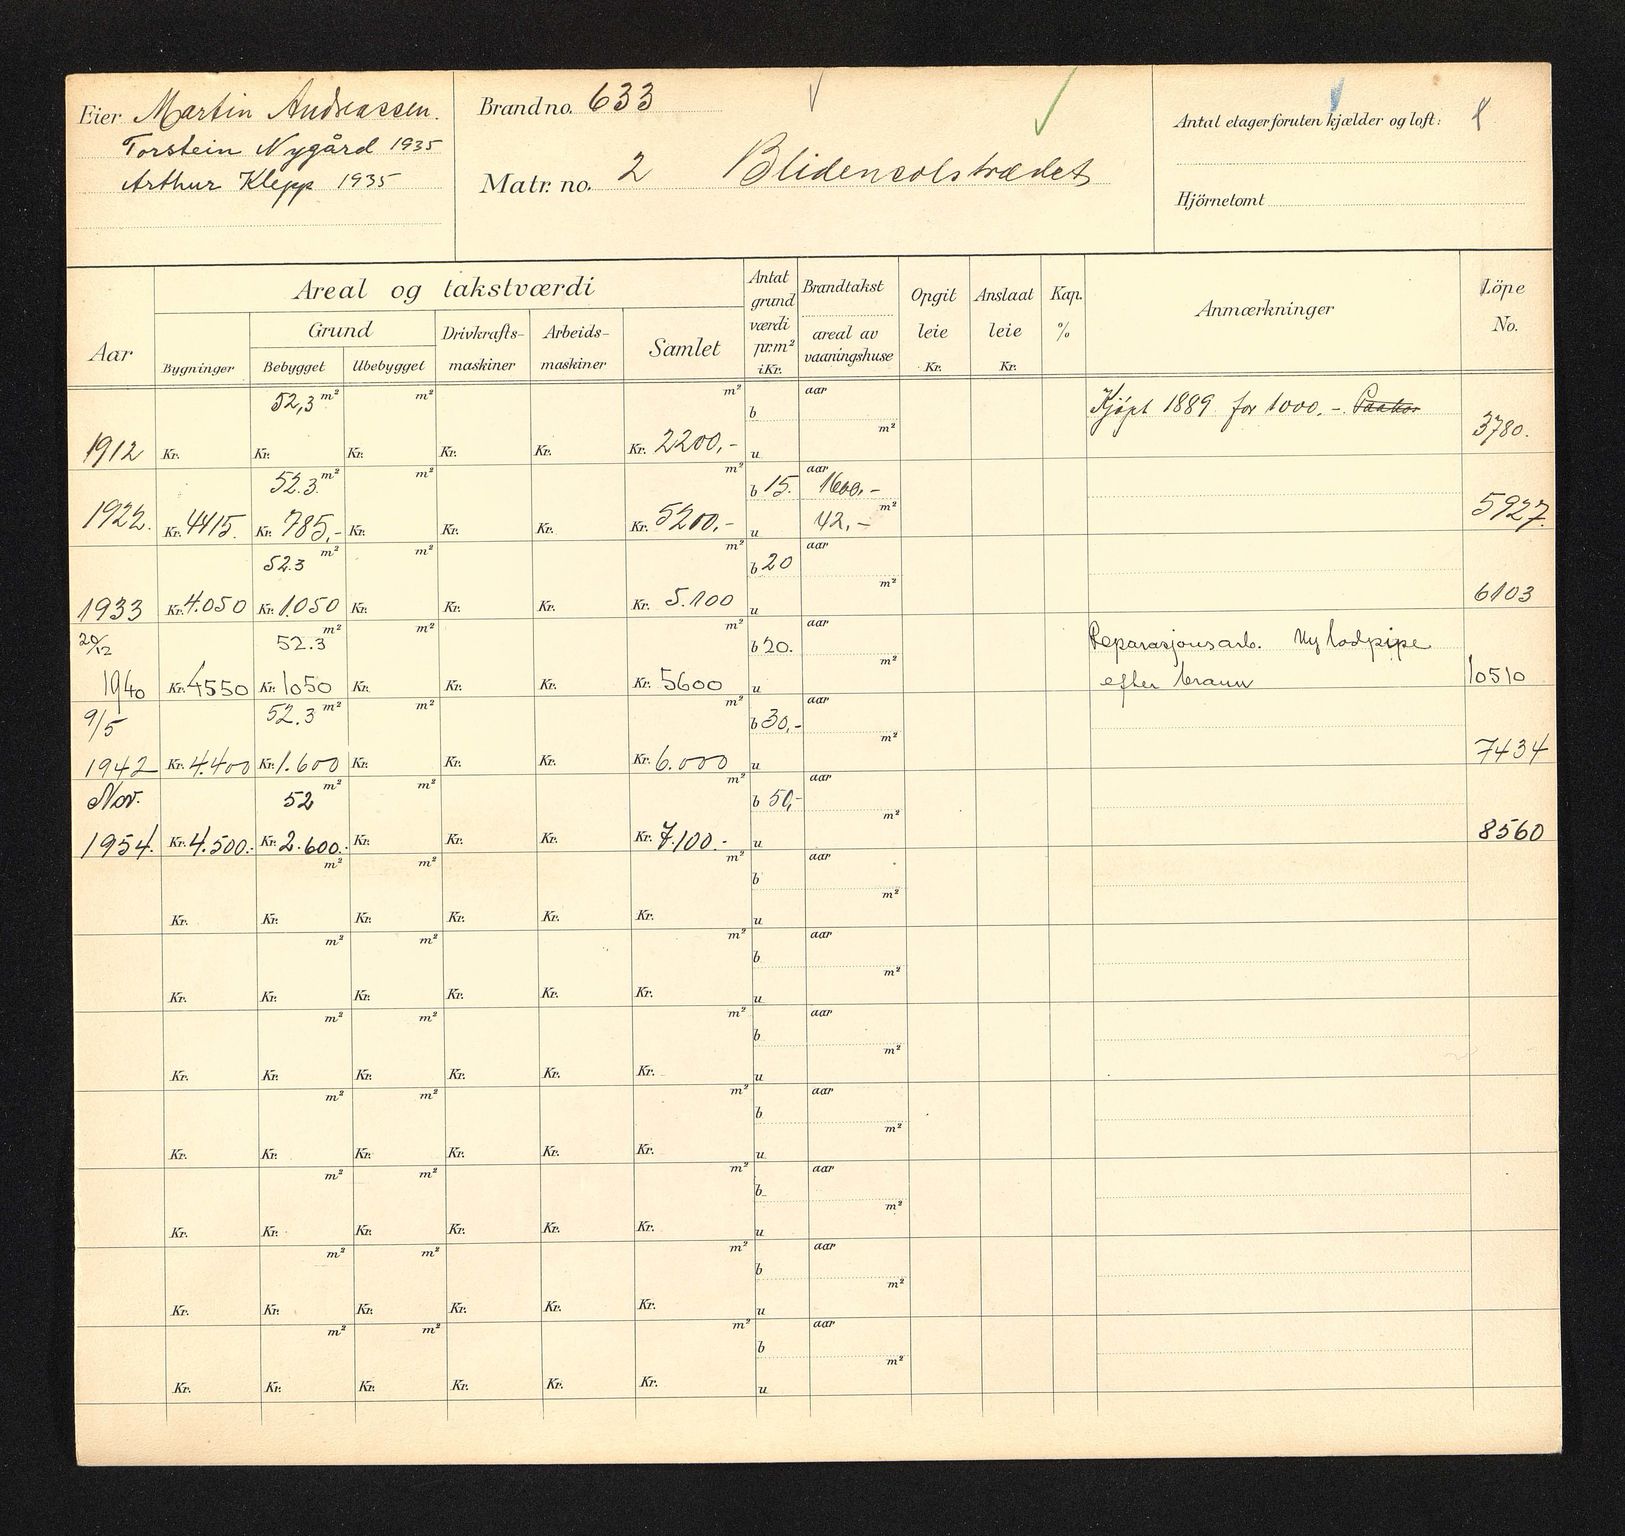 Eier Martin Andreassen.
Torstein Nygård 1935
Arthur Klepp 1935
Brandno. 633
Matr. no. 2 Blidensolstrædet
Antal etager foruten kjælder og loft: 1
Hjörnetomt
Aar
Areal og takstværdi
Bygninger
Grund
Bebygget Ubebygget
Drivkrafts-
maskiner
Arbeids-
maskiner
Samlet
Antat
grund
værdi
pr.m²
i Kr.
Brandtakst
areal av
vaaningshuse
Opgit
leie
Kr.
Anslaat
leie
Kr.
Kap.
%
Anmærkninger
Löpe
No.
52,3 m² m² m² b aar m² Kjøpt 1889 for 1000.-
1912 Kr. Kr. Kr. Kr. Kr. Kr. 2200,- u 3780.
52.3. m² m² m² b 15. aar 1600,-
1922. Kr. 4415. Kr. 785,- Kr. Kr. Kr. Kr. 5200,- u 42,- m² 5927.
52.3 m² m² m² b 20 aar m²
1933 Kr. 4.050 Kr. 1.050 Kr. Kr. Kr. Kr. 5.100 u 6103
20/12 52.3 m² m² m² b 20. aar m² Reparasjonsarb. Ny lodpipe
1940 Kr. 4550 Kr. 1050 Kr. Kr. Kr. Kr. 5600 u efter brann 10510
9/5 52.3 m² m² m² b 30,- aar m²
1942 Kr. 4.400 Kr. 1.600 Kr. Kr. Kr. Kr. 6.000 u 7434
Nov. 52 m² m² m² b 50,- aar m²
1954. Kr. 4.500.- Kr. 2.600.- Kr. Kr. Kr. Kr. 7.100.- u 8560
m² m² m² b aar m²
Kr. Kr. Kr. Kr. Kr. Kr. u
m² m² m² b aar m²
Kr. Kr. Kr. Kr. Kr. Kr. u
m² m² m² b aar m²
Kr. Kr. Kr. Kr. Kr. Kr. u
m² m² m² b aar m²
Kr. Kr. Kr. Kr. Kr. Kr. u
m² m² m² b aar m²
Kr. Kr. Kr. Kr. Kr. Kr. u
m² m² m² b aar m²
Kr. Kr. Kr. Kr. Kr. Kr. u
m² m² m² b aar m²
Kr. Kr. Kr. Kr. Kr. Kr. u